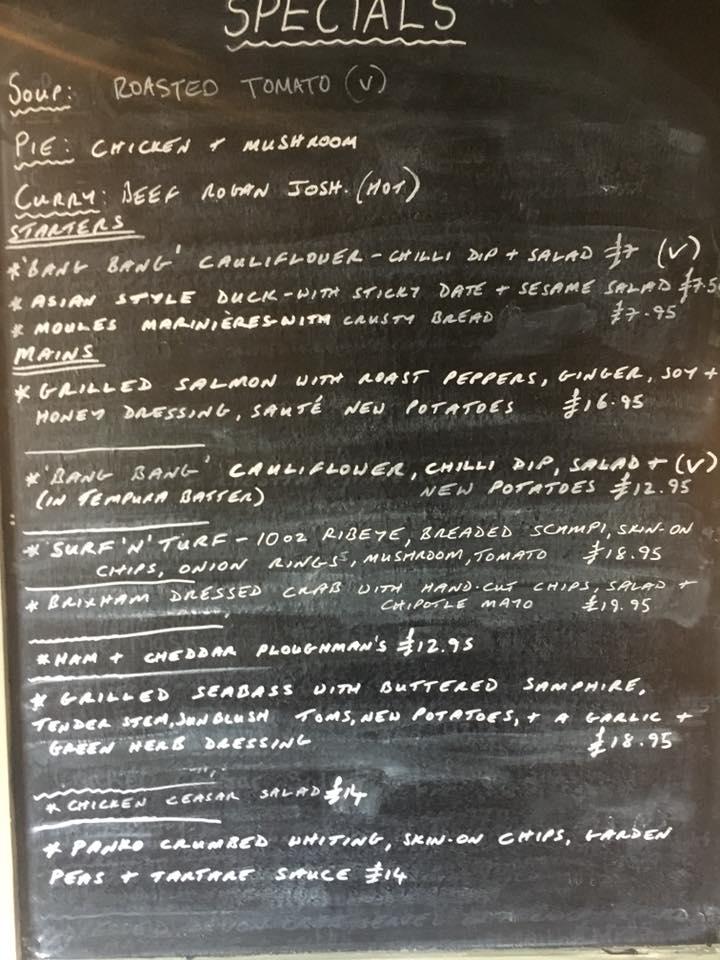 SPECIALS
SOUP: ROASTED TOMATO (V)
PIE: CHICKEN + MUSHROOM
CURRY: BEEF ROGAN JOSH. (HOT)
STARTERS
* 'BANG BANG' CAULIFLOWER - CHILLI DIP + SALAD £7 (V)
* ASIAN STYLE DUCK - WITH STICKY DATE + SESAME SALAD £7.50
* MOULES MARINIÈRES - WITH CRUSTY BREAD £7.95
MAINS
* GRILLED SALMON WITH ROAST PEPPERS, GINGER, SOY +
HONEY DRESSING, SAUTÉ NEW POTATOES £16.95
* 'BANG BANG' CAULIFLOWER, CHILLI DIP, SALAD + (V)
(IN TEMPURA BATTER) NEW POTATOES £12.95
* 'SURF 'N' TURF - 10OZ RIBEYE, BREADED SCAMPI, SKIN-ON
CHIPS, ONION RINGS, MUSHROOM, TOMATO £18.95
* BRIXHAM DRESSED CRAB WITH HAND-CUT CHIPS, SALAD +
CHIPOTLE MAYO £19.95
* HAM + CHEDDAR PLOUGHMAN'S £12.95
* GRILLED SEABASS WITH BUTTERED SAMPHIRE,
TENDER STEM, SUNBLUSH TOMS, NEW POTATOES, + A GARLIC +
GREEN HERB DRESSING £18.95
* CHICKEN CEASAR SALAD £14
* PANKO CRUMBED WHITING, SKIN-ON CHIPS, GARDEN
PEAS + TARTARE SAUCE £14